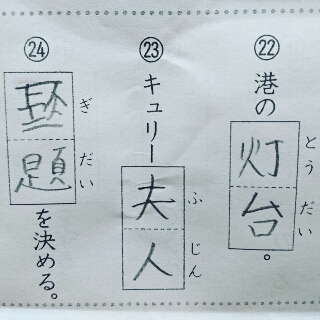 ㉒ 港の灯台。
とうだい
㉓ キュリー夫人
ふじん
㉔ 題を決める。
ぎだい